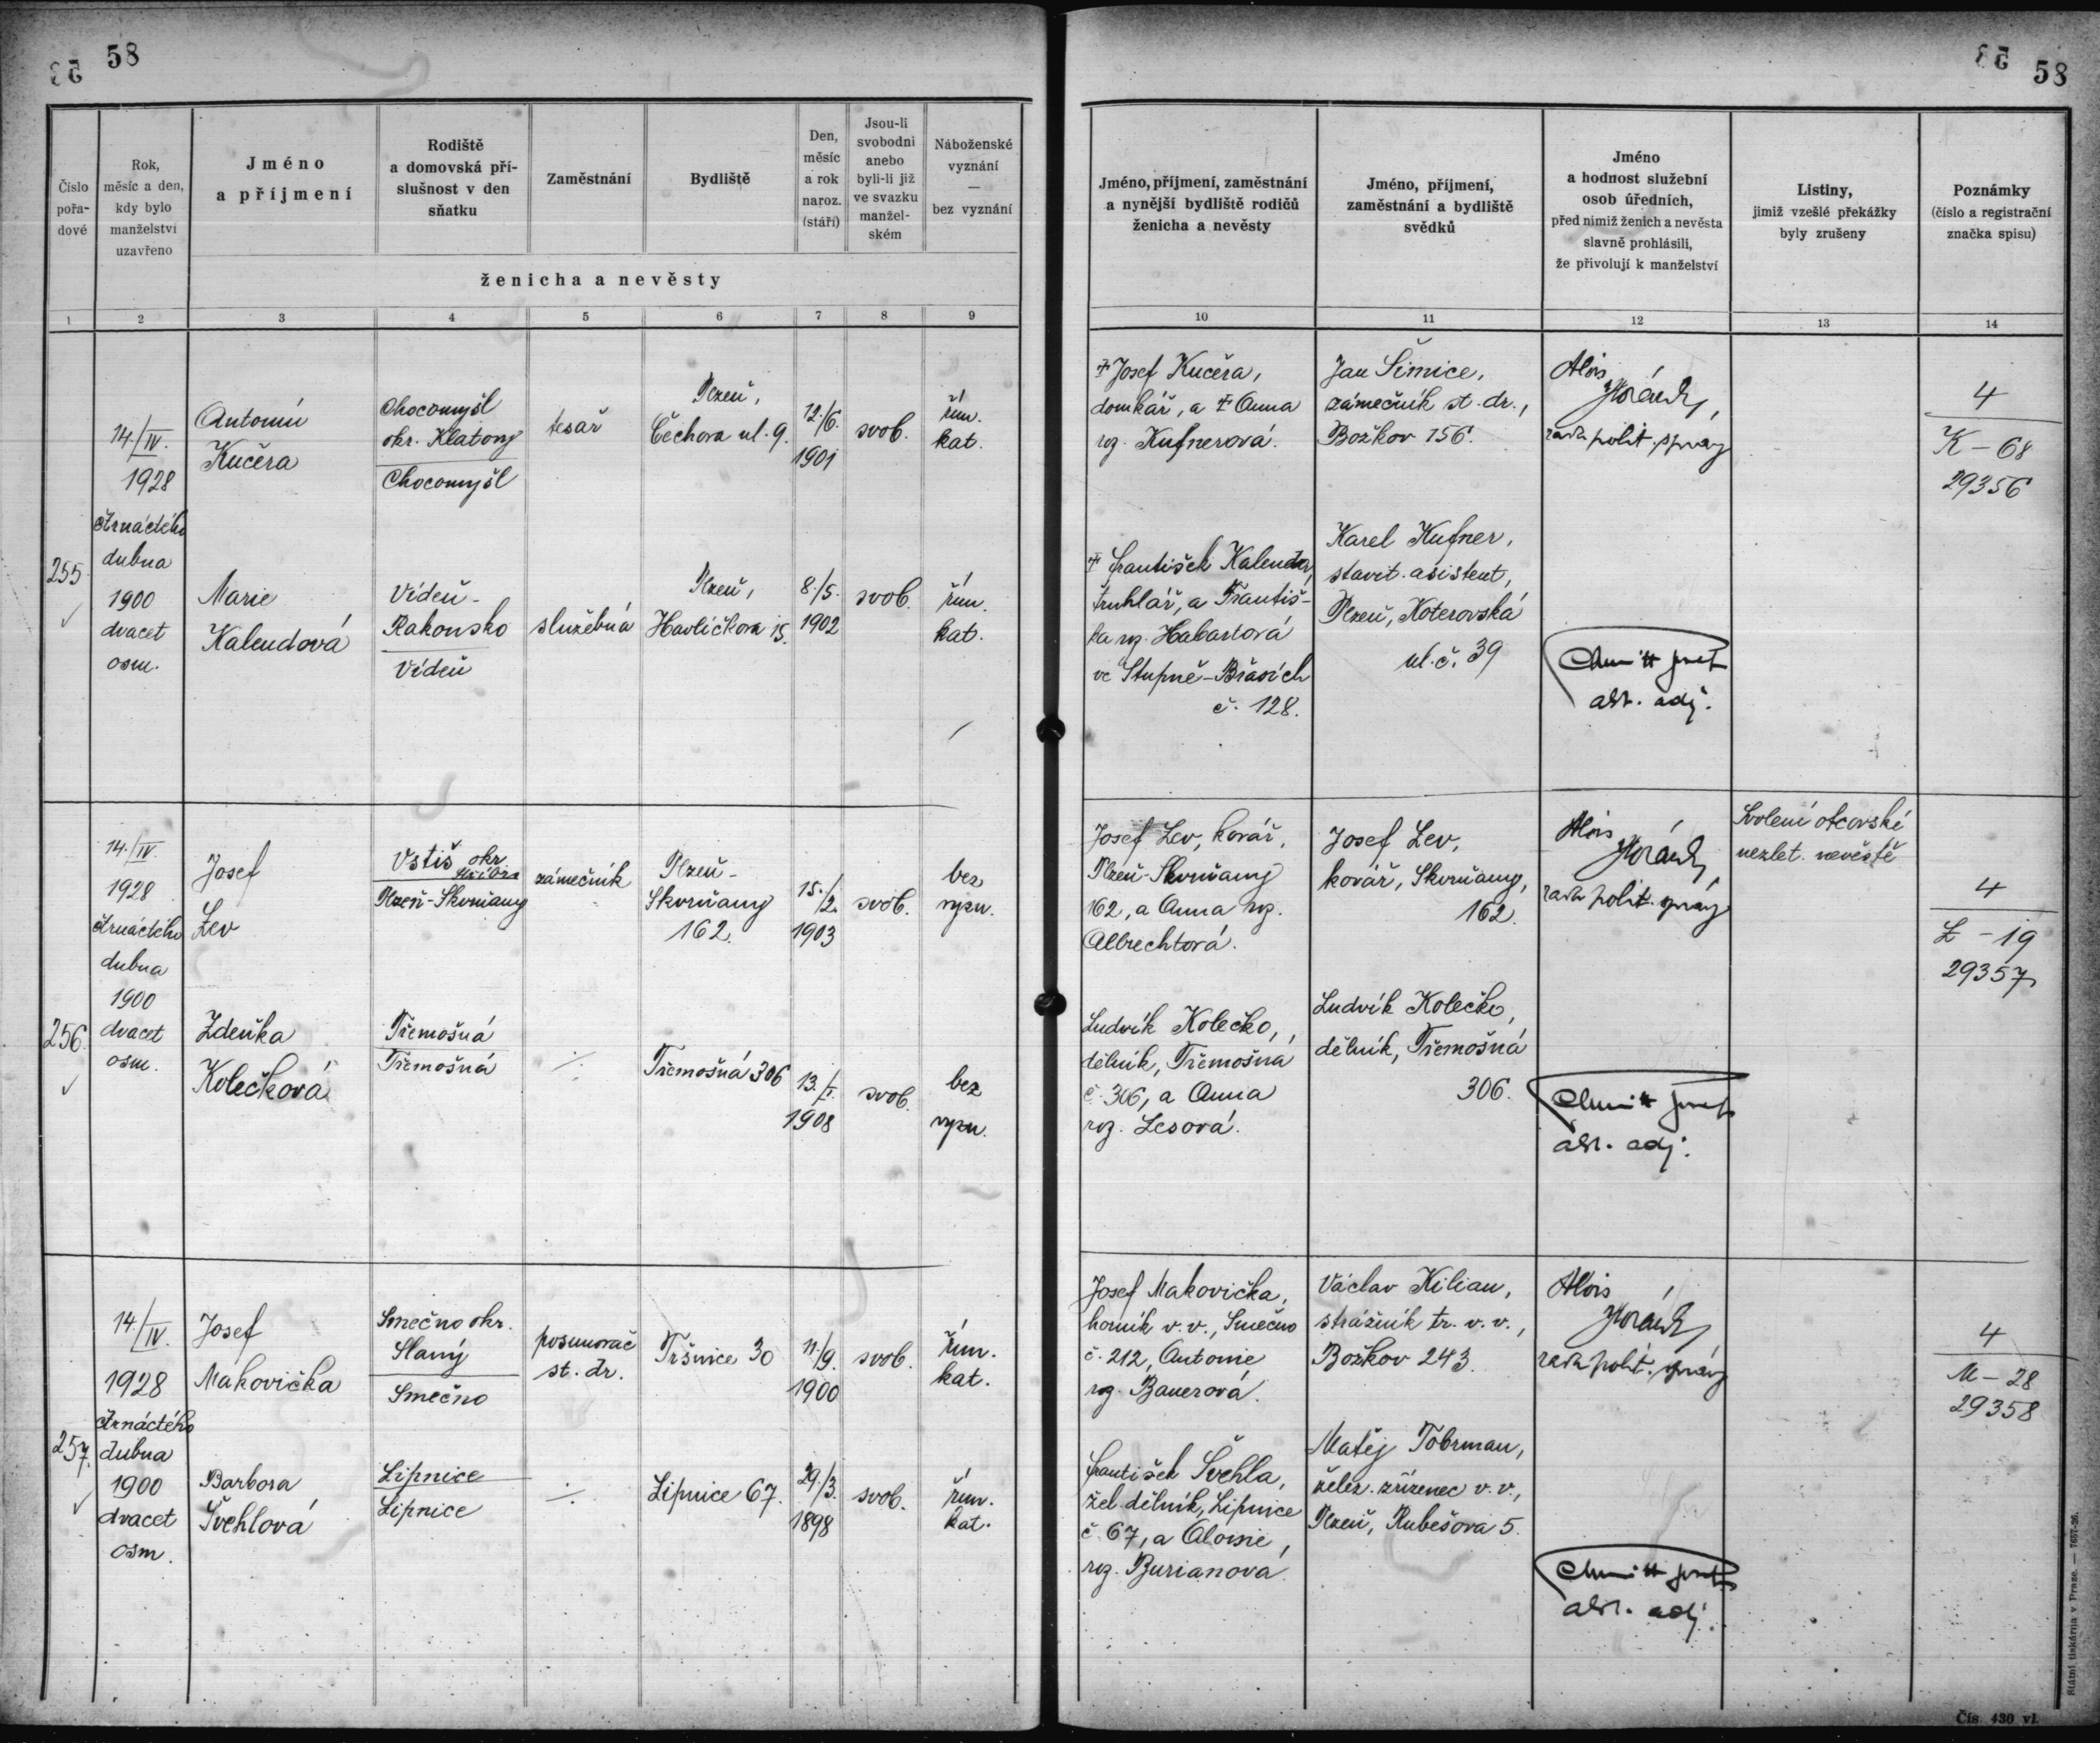 58
58
Číslo
pořa-
dové
Rok,
měsíc a den,
kdy bylo
manželství
uzavřeno
Jméno
a příjmení
Rodiště
a domovská pří-
slušnost v den
sňatku
Zaměstnání
Bydliště
Den,
měsíc
a rok
naroz.
(stáří)
Jsou-li
svobodni
anebo
byli-li již
ve svazku
manžel-
ském
Náboženské
vyznání
—
bez vyznání
ženicha a nevěsty
1 2 3 4 5 6 7 8 9
Jméno, příjmení, zaměstnání
a nynější bydliště rodičů
ženicha a nevěsty
Jméno, příjmení,
zaměstnání a bydliště
svědků
Jméno
a hodnost služební
osob úředních,
před nimiž ženich a nevěsta
slavně prohlásili,
že přivolují k manželství
Listiny,
jimiž vzešlé překážky
byly zrušeny
Poznámky
(číslo a registrační
značka spisu)
10 11 12 13 14
255
14./IV.
1928
čtrnáctého
dubna
1900
dvacet
osm.
Antonín
Kučera
Chocomyšl
okr. Klatovy
Chocomyšl
tesař
Plzeň,
Čechova ul. 9.
12./6.
1901
svob.
řím.
kat.
Marie
Kalendová
Vídeň-
Rakousko
Vídeň
služebná
Plzeň,
Havlíčkova 15.
8./5.
1902
svob.
řím.
kat.
† Josef Kučera,
domkář, a † Anna
roz. Kufnerová.
† František Kalenda,
truhlář, a Františ-
ka roz. Habartová
ve Stupně-Břasích
č. 128.
Jan Šimice,
zámečník st. dr.,
Božkov 156.
Karel Kufner,
stavit. asistent,
Plzeň, Koterovská
ul. č. 39
Alois
Horáček,
rada polit. správy
adj.
4
K - 68
29356
256.
14./IV.
1928
čtrnáctého
dubna
1900
dvacet
osm.
Josef
Lev
Vstiš okr.
Plzeň-Skvrňany
zámečník
Plzeň-
Skvrňany
162.
15./2.
1903
svob.
bez
vyzn.
Zdeňka
Kolečková
Třemošná
Třemošná
Třemošná 306
13./I.
1908
svob.
bez
vyzn.
Josef Lev, kovář,
Plzeň-Skvrňany
162, a Anna roz.
Albrechtová.
Ludvík Kolečko,
dělník, Třemošná
č. 306, a Anna
roz. Lesová.
Josef Lev,
kovář, Skvrňany,
162.
Ludvík Kolečko,
dělník, Třemošná
306.
Alois
Horáček,
rada polit. správy
adj.
Svolení otcovské
nezlet. nevěstě
4
L - 19
29357
257.
14./IV.
1928
čtrnáctého
dubna
1900
dvacet
osm.
Josef
Makovička
Smečno okr.
Slaný
Smečno
posunovač
st. dr.
Tršnice 30
11./9.
1900
svob.
řím.
kat.
Barbora
Švehlová
Lipnice
Lipnice
Lipnice 67.
29./3.
1898
svob.
řím.
kat.
Josef Makovička,
horník v. v., Smečno
č. 212, Antonie
roz. Bauerová.
František Švehla,
žel. dělník, Lipnice
č. 67, a Aloisie,
roz. Burianová
Václav Kilian,
strážník tr. v. v.,
Božkov 243.
Matěj Tobrman,
želez. zřízenec v. v.,
Plzeň, Rubešova 5.
Alois
Horáček,
rada polit. správy
adj.
4
M - 28
29358
Státní tiskárna v Praze. — 7667-26.
Čís. 430 vl.